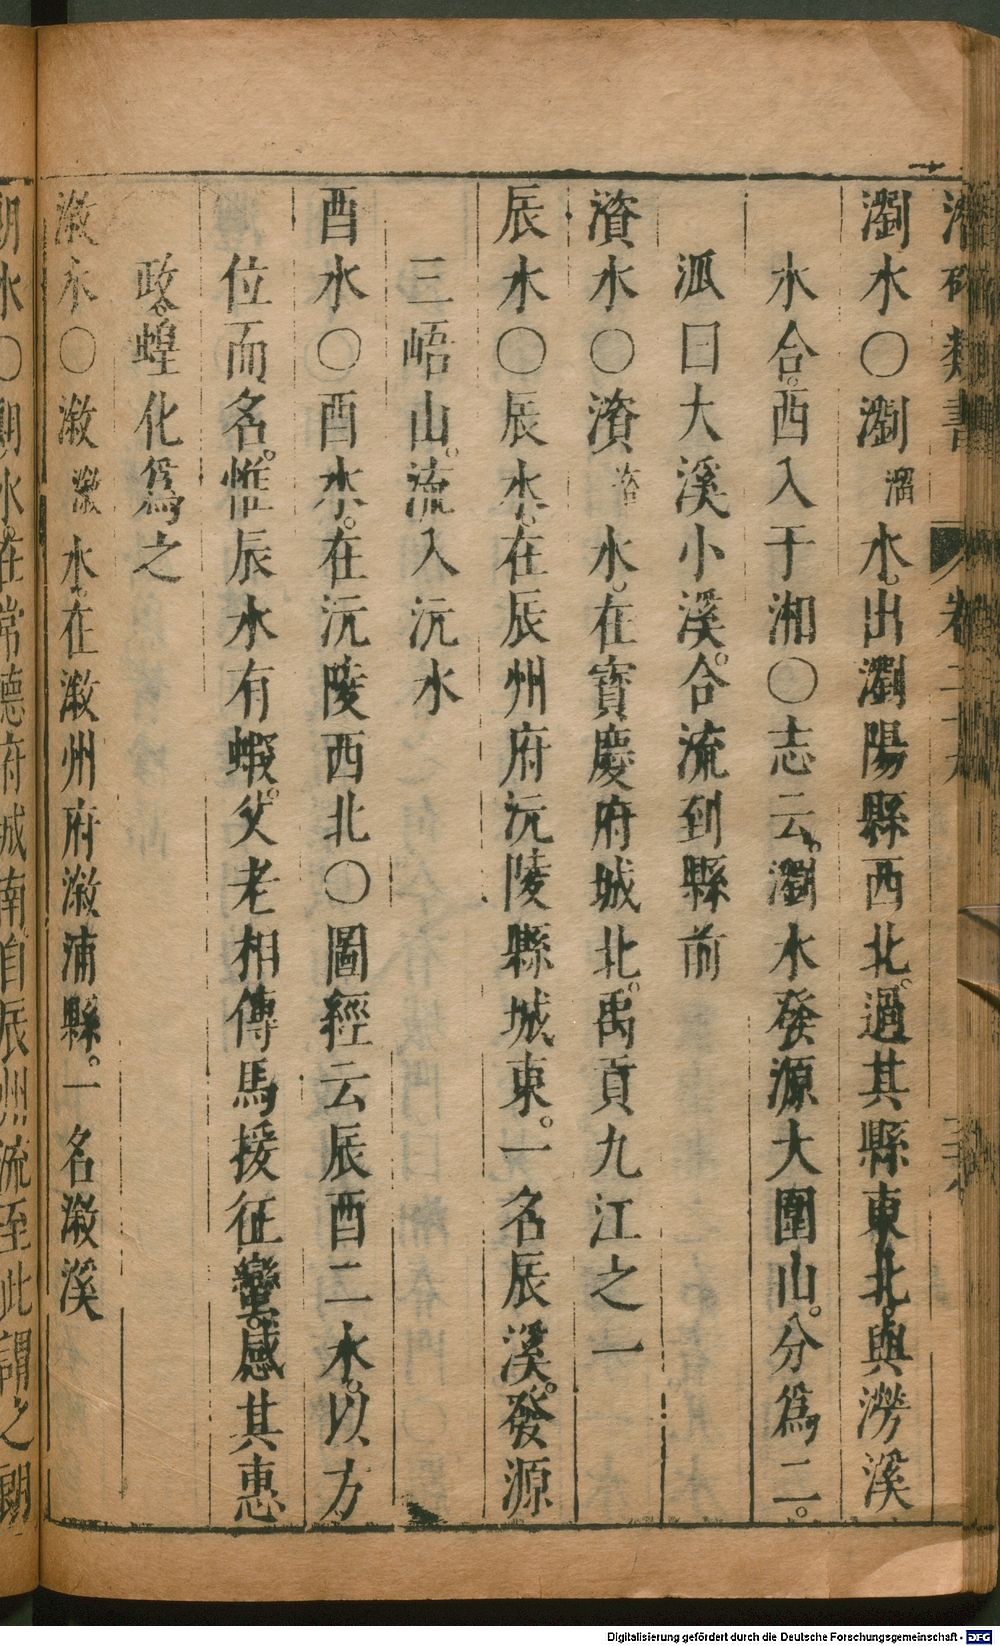 瀏水〇瀏溜水。出瀏陽縣西北。過其縣東北。與澇溪
水合。西入于湘〇志云。瀏水發源大圍山。分爲二。
派曰大溪小溪。合流到縣前
濱水〇濱水。在寶慶府城北。禹貢九江之一
辰水〇辰水。在辰州府沅陵縣城東。一名辰溪。發源
三峿山。流入沅水
酉水〇酉水。在沅陵西北〇圖經云辰酉二水。以方
位而名。惟辰水有蝦。父老相傳馬援征蠻。感其惠
政。蝗化爲之
漵水〇漵漵水。在漵州府漵浦縣。一名漵溪
朗水〇朗水。在常德府城南自辰州流至此謂之朗
Digitalisierung gefördert durch die Deutsche Forschungsgemeinschaft - DFG